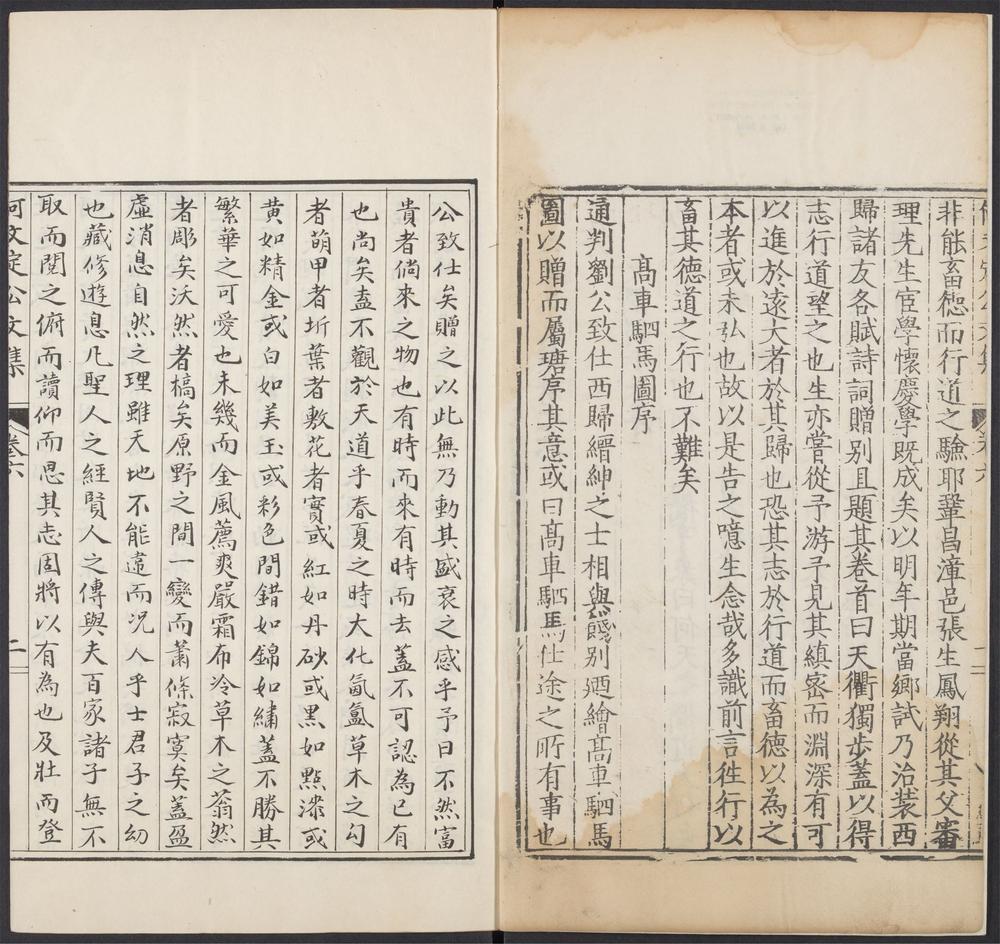 非能畜德而行道之驗耶鞏昌漳邑張生鳳翔從其父審
理先生宦學懷慶學既成矣以明年期當鄉試乃治裝西
歸諸友各賦詩詞贈别且題其卷首曰天衢獨步蓋以得
志行道望之也生亦嘗從予游予見其縝密而淵深有可
以進於遠大者於其歸也恐其志於行道而畜德以為之
本者或未弘也故以是告之噫生念哉多識前言徃行以
畜其德道之行也不難矣
髙車駟馬圖序
通判劉公致仕西歸縉紳之士相與餞别廼繪髙車駟馬
圖以贈而屬瑭序其意或曰髙車駟馬仕途之所有事也
公致仕矣贈之以此無乃動其盛衰之感乎予曰不然富
貴者倘來之物也有時而來有時而去蓋不可認為已有
也尚矣盍不觀於天道乎春夏之時大化氤氳草木之勾
者萌甲者坼葉者敷花者實或紅如丹砂或黑如點漆或
黄如精金或白如美玉或彩色間錯如錦如繡蓋不勝其
繁華之可愛也未幾而金風薦爽嚴霜布冷草木之蓊然
者彫矣沃然者槁矣原野之間一變而蕭條寂寞矣蓋盈
虛消息自然之理雖天地不能違而况人乎士君子之幼
也藏修遊息凡聖人之經賢人之傳與夫百家諸子無不
取而閱之俯而讀仰而思其志固將以有為也及壯而登
何文定公文集 卷六 二